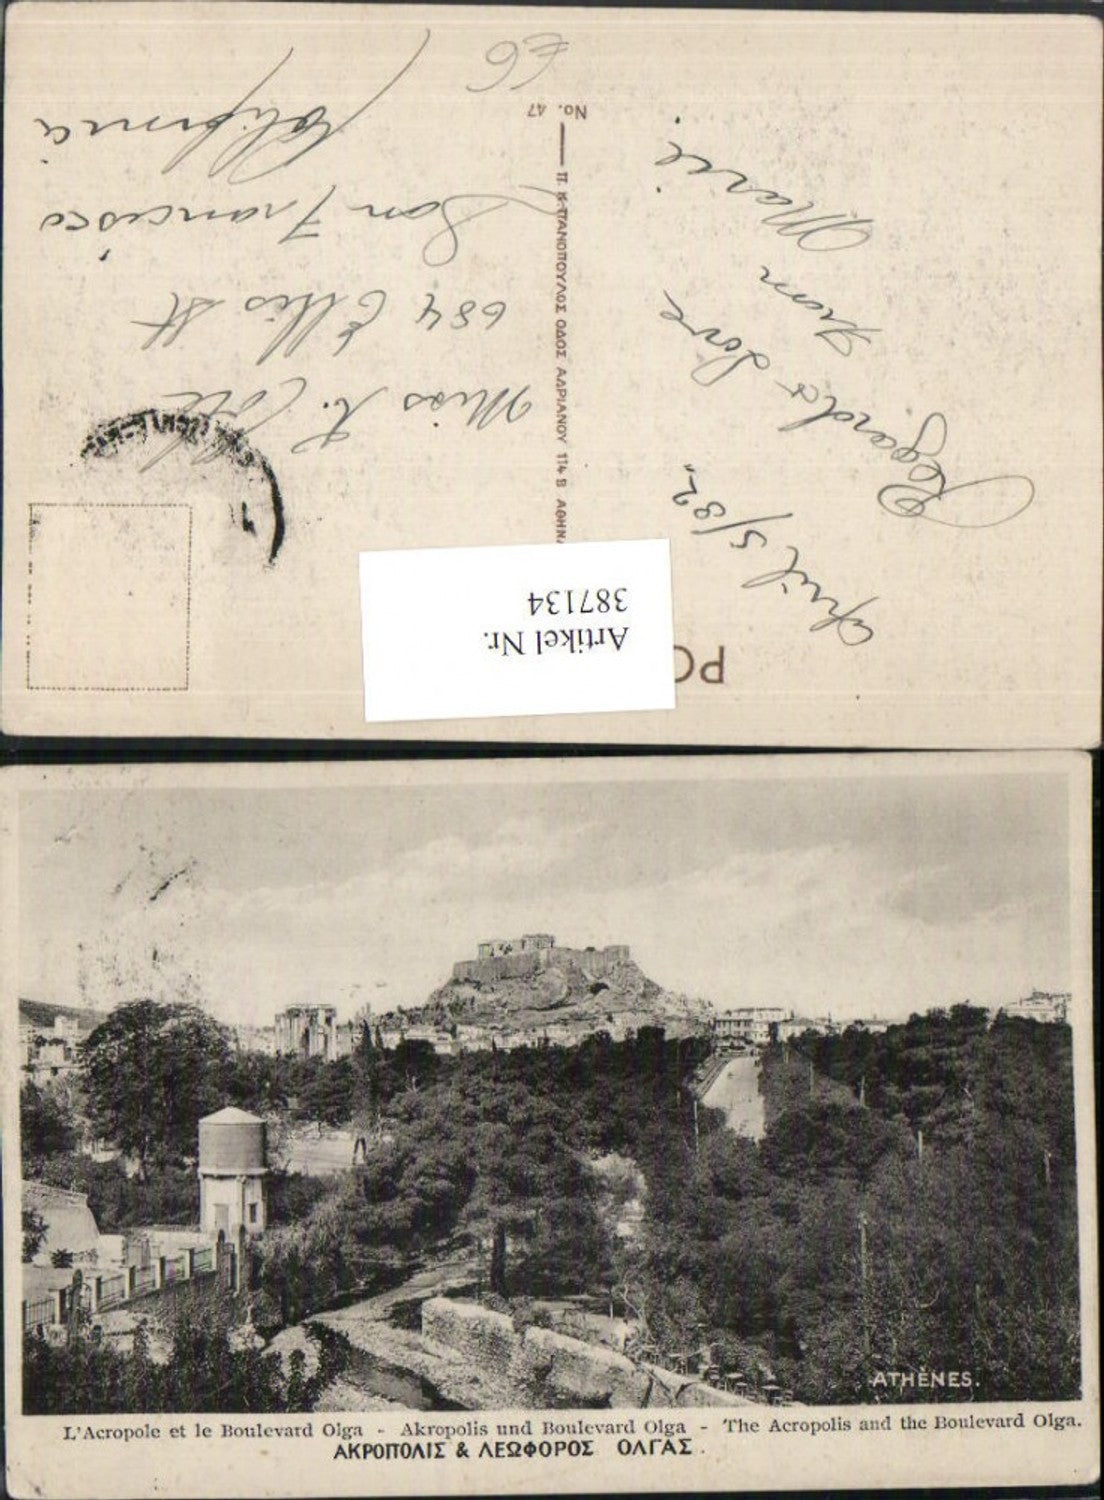 PO
April 5/32.
Regards Love
from
Marie
Miss K. Cole
684 Ellis St
San Francisco
California
No. 47
Π. Κ. ΠΑΝΟΠΟΥΛΟΣ ΟΔΟΣ ΑΔΡΙΑΝΟΥ 114 Β ΑΘΗΝ
Artikel Nr.
387134
ATHÈNES.
L'Acropole et le Boulevard Olga - Akropolis und Boulevard Olga - The Acropolis and the Boulevard Olga.
ΑΚΡΟΠΟΛΙΣ & ΛΕΩΦΟΡΟΣ ΟΛΓΑΣ.